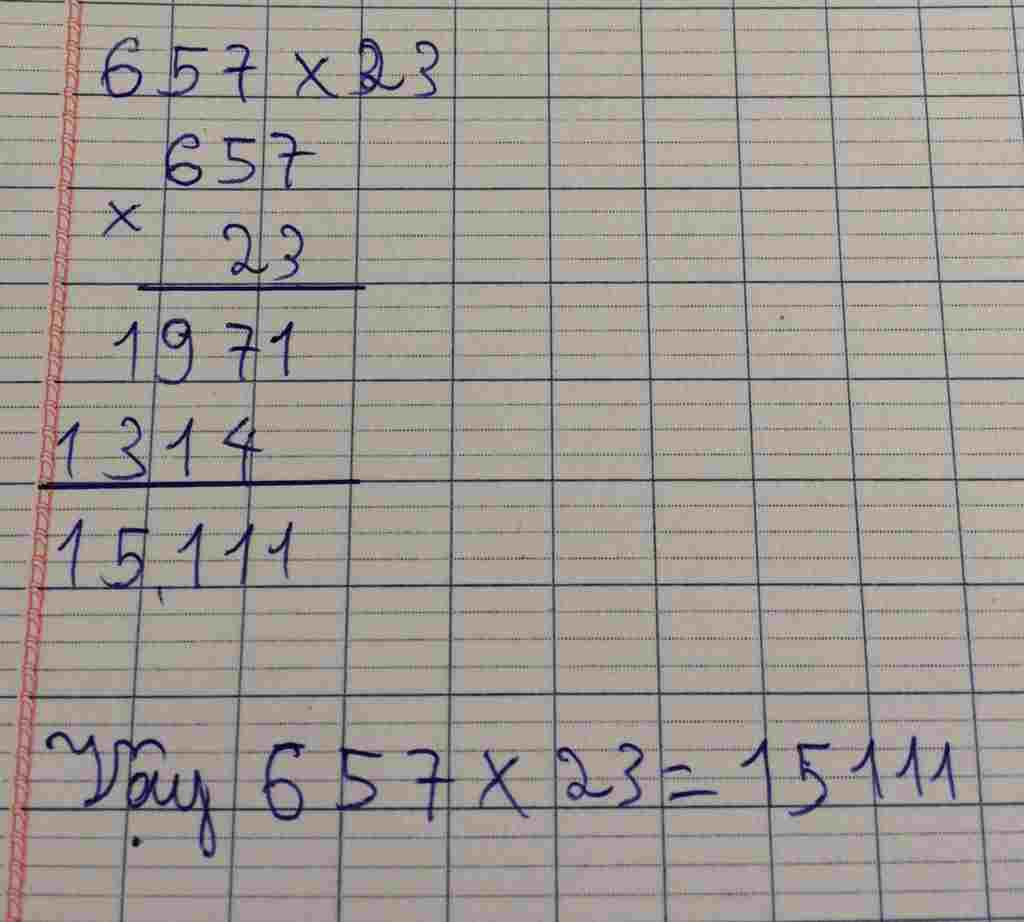 657 x 23
657
x
23
1971
1314
15,111
Vậy 657 x 23 = 15111